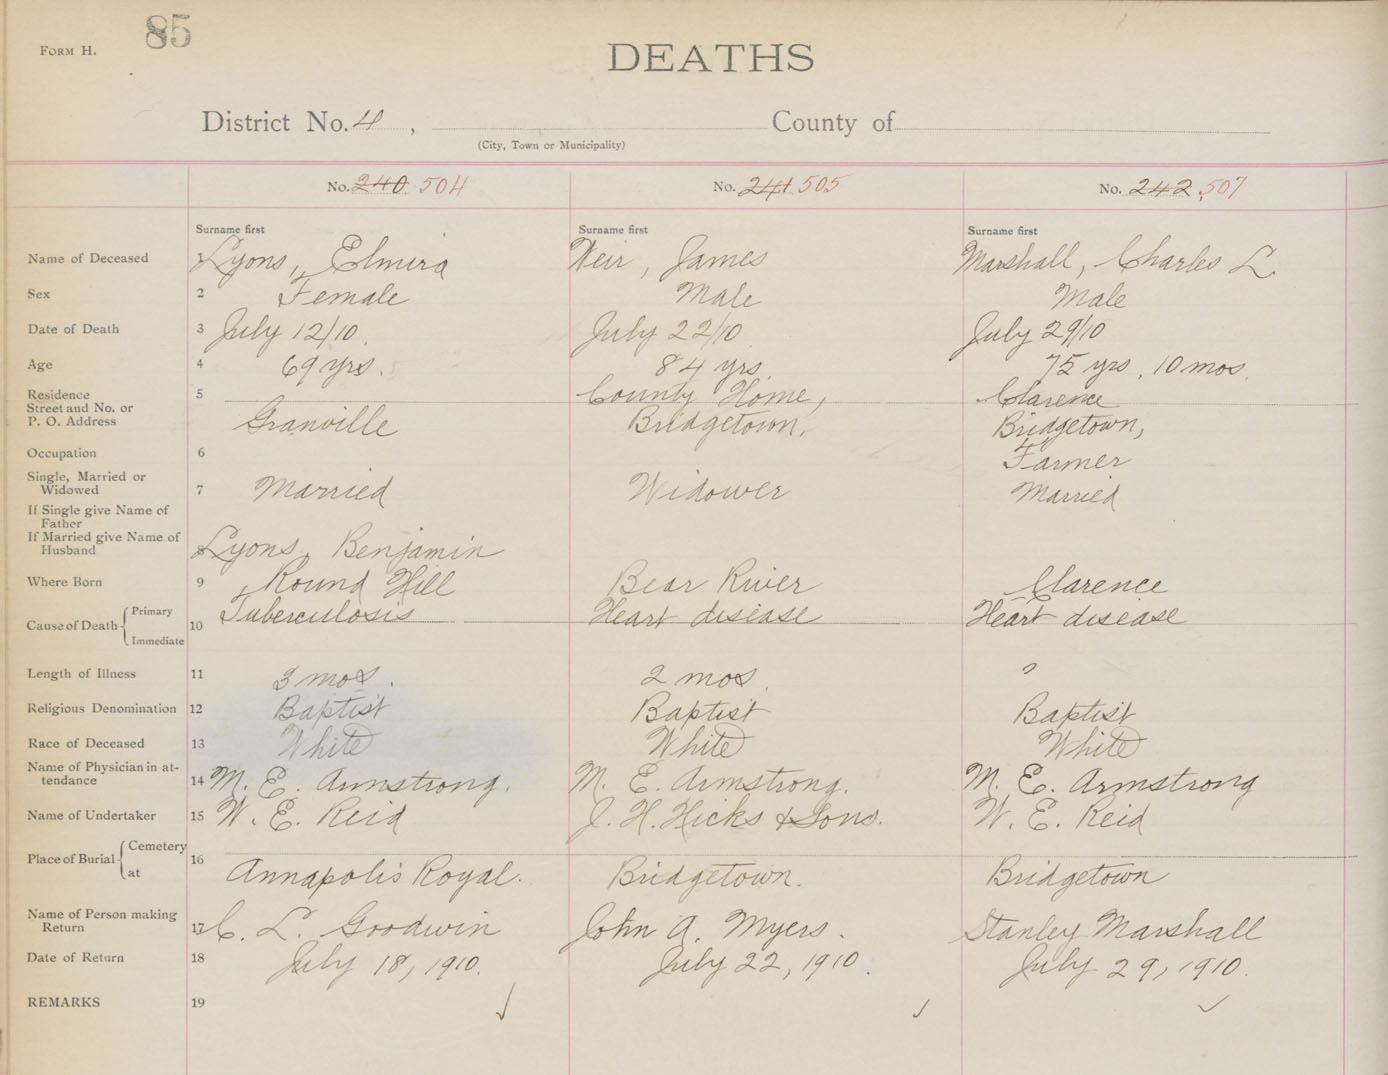 85
FORM H.
DEATHS
District No. 4 , County of
(City, Town or Municipality)
No. 240 504 No. 241 505 No. 242 507
Surname first Surname first Surname first
Name of Deceased 1 Lyons, Elmira Weir, James Marshall, Charles L.
Sex 2 Female Male Male
Date of Death 3 July 12/10. July 22/10. July 29/10
Age 4 69 yrs. 84 yrs. 75 yrs, 10 mos.
Residence 5 County Home, Clarence
Street and No. or
P. O. Address Granville Bridgetown. Bridgetown,
Occupation 6 Farmer
Single, Married or
Widowed 7 Married Widower Married
If Single give Name of
Father
If Married give Name of
Husband 8 Lyons, Benjamin
Where Born 9 Round Hill Bear River Clarence
Cause of Death Primary 10 Tuberculosis Heart disease Heart disease
Immediate
Length of Illness 11 3 mos. 2 mos. ?
Religious Denomination 12 Baptist Baptist Baptist
Race of Deceased 13 White White White
Name of Physician in at-
tendance 14 M. E. Armstrong. M. E. Armstrong. M. E. Armstrong
Name of Undertaker 15 W. E. Reid J. H. Hicks & Sons. W. E. Reid
Place of Burial Cemetery 16
at Annapolis Royal. Bridgetown. Bridgetown
Name of Person making
Return 17 C. L. Goodwin John A. Myers. Stanley Marshall
Date of Return 18 July 18, 1910. July 22, 1910. July 29, 1910.
REMARKS 19